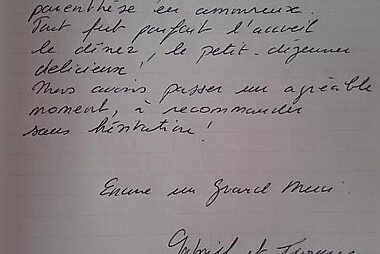 parenthèse en amoureux.
Tout fut parfait l'accueil
le dîner, le petit-déjeuner
délicieux !
Nous avons passer un agréable
moment, à recommander
sans hésitation !
Encore un Grand Merci.
Gabriel et